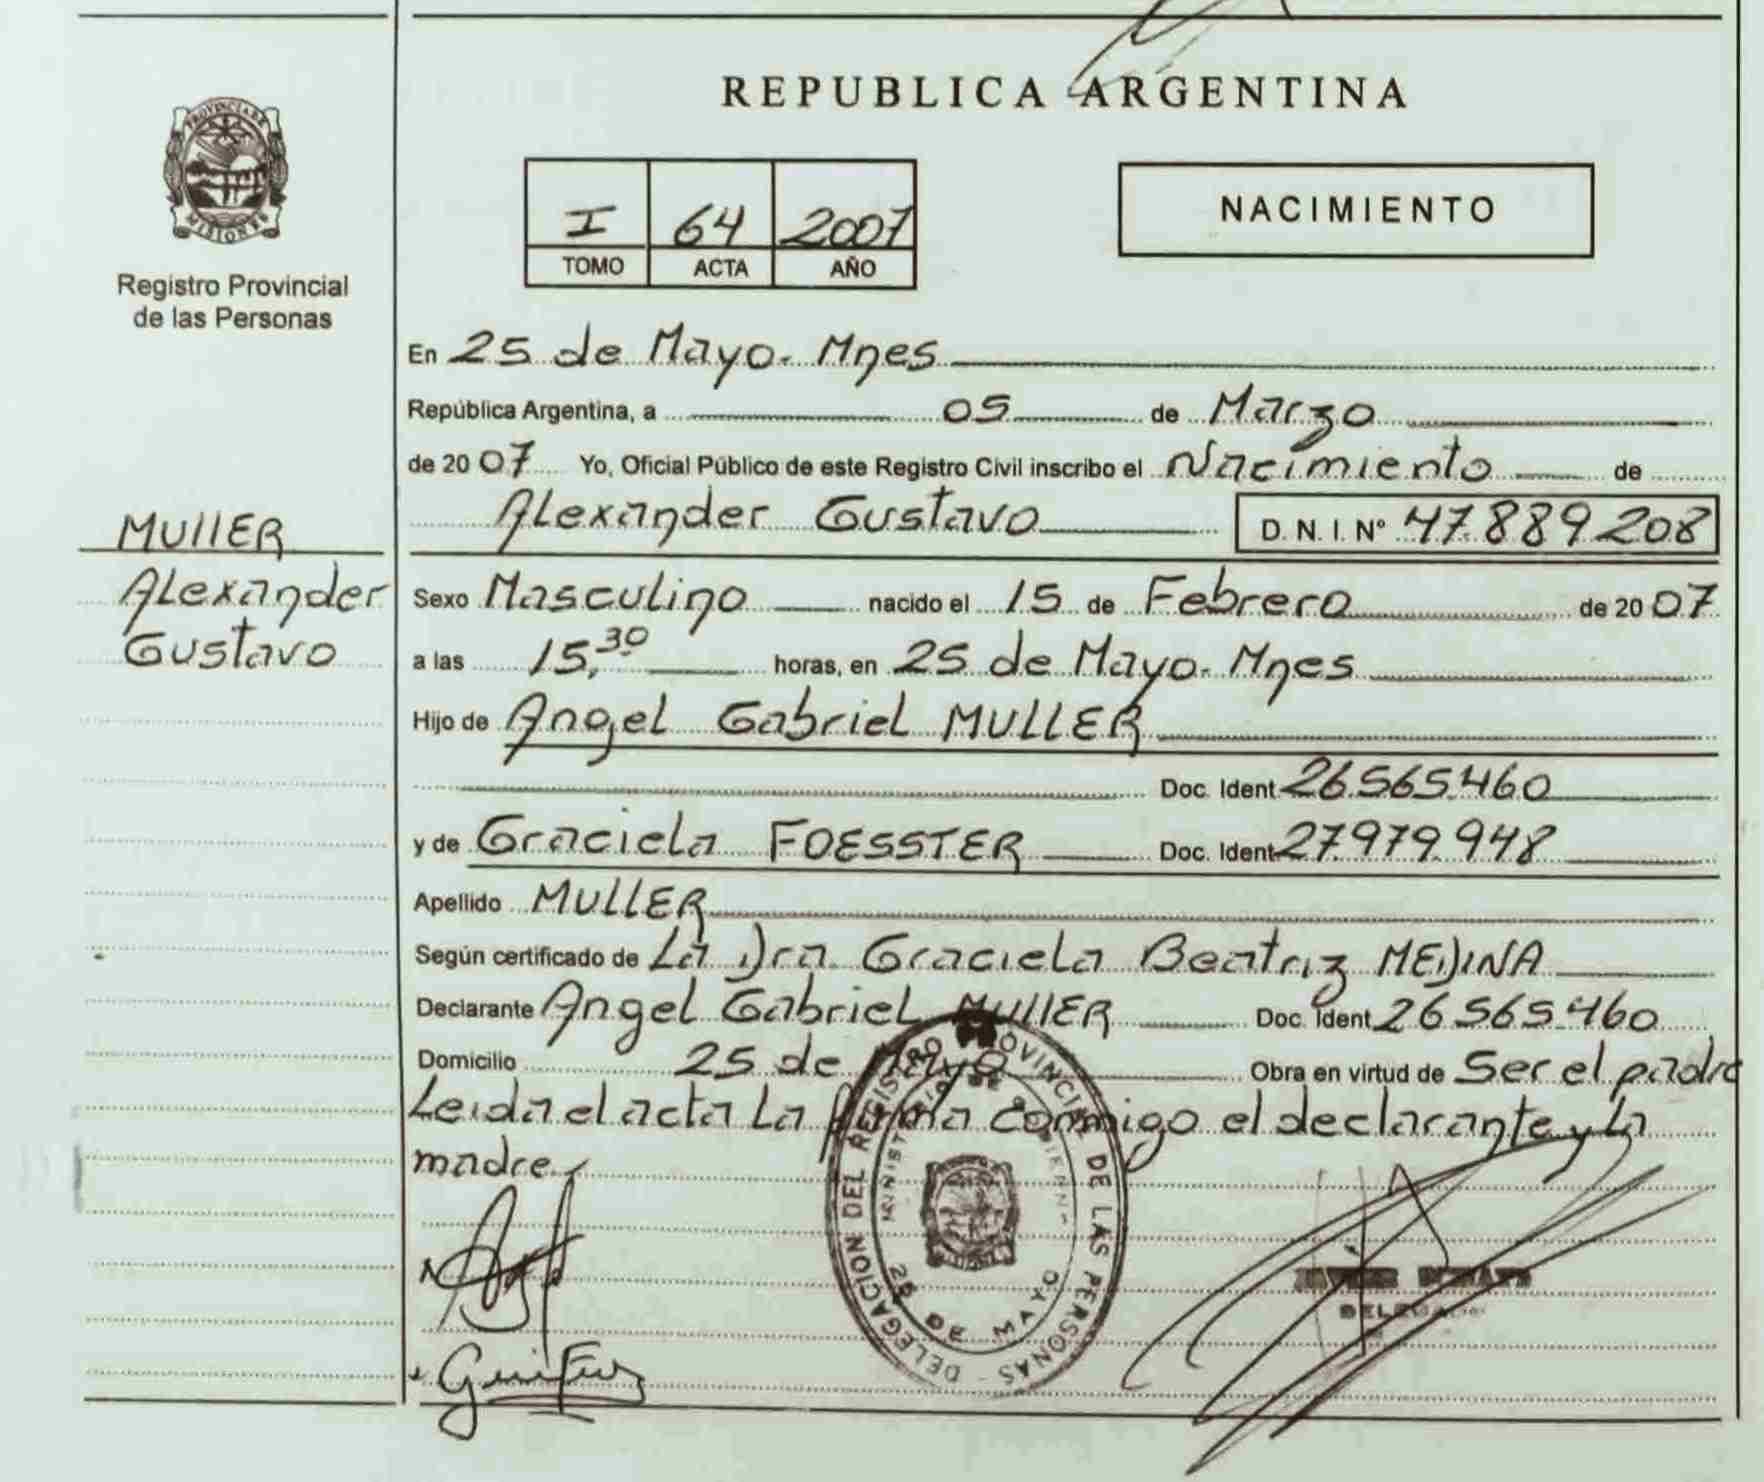 REPUBLICA ARGENTINA
PROVINCIA DE
MISIONES
Registro Provincial
de las Personas
I 64 2007
TOMO ACTA AÑO
NACIMIENTO
En 25 de Mayo. Mnes
República Argentina, a 05 de Marzo
de 20 07 Yo, Oficial Público de este Registro Civil inscribo el Nacimiento de
Alexander Gustavo D. N. I. Nº 47.889.208
MUllER
Alexander
Gustavo
Sexo Masculino nacido el 15 de Febrero de 20 07
a las 15,30 horas, en 25 de Mayo. Mnes
Hijo de Angel Gabriel MULLER
Doc. Ident 26.565.460
y de Graciela FOESSTER Doc. Ident 27.979.948
Apellido MULLER
Según certificado de La Dra. Graciela Beatriz MEDINA
Declarante Angel Gabriel MUllER Doc. Ident 26.565.460
Domicilio 25 de Mayo Obra en virtud de Ser el padre
Leida el acta La firma conmigo el declarante y La
madre
DELEGACION DEL REGISTRO PROVINCIAL DE LAS PERSONAS
MINISTERIO DE GOBIERNO
25 DE MAYO